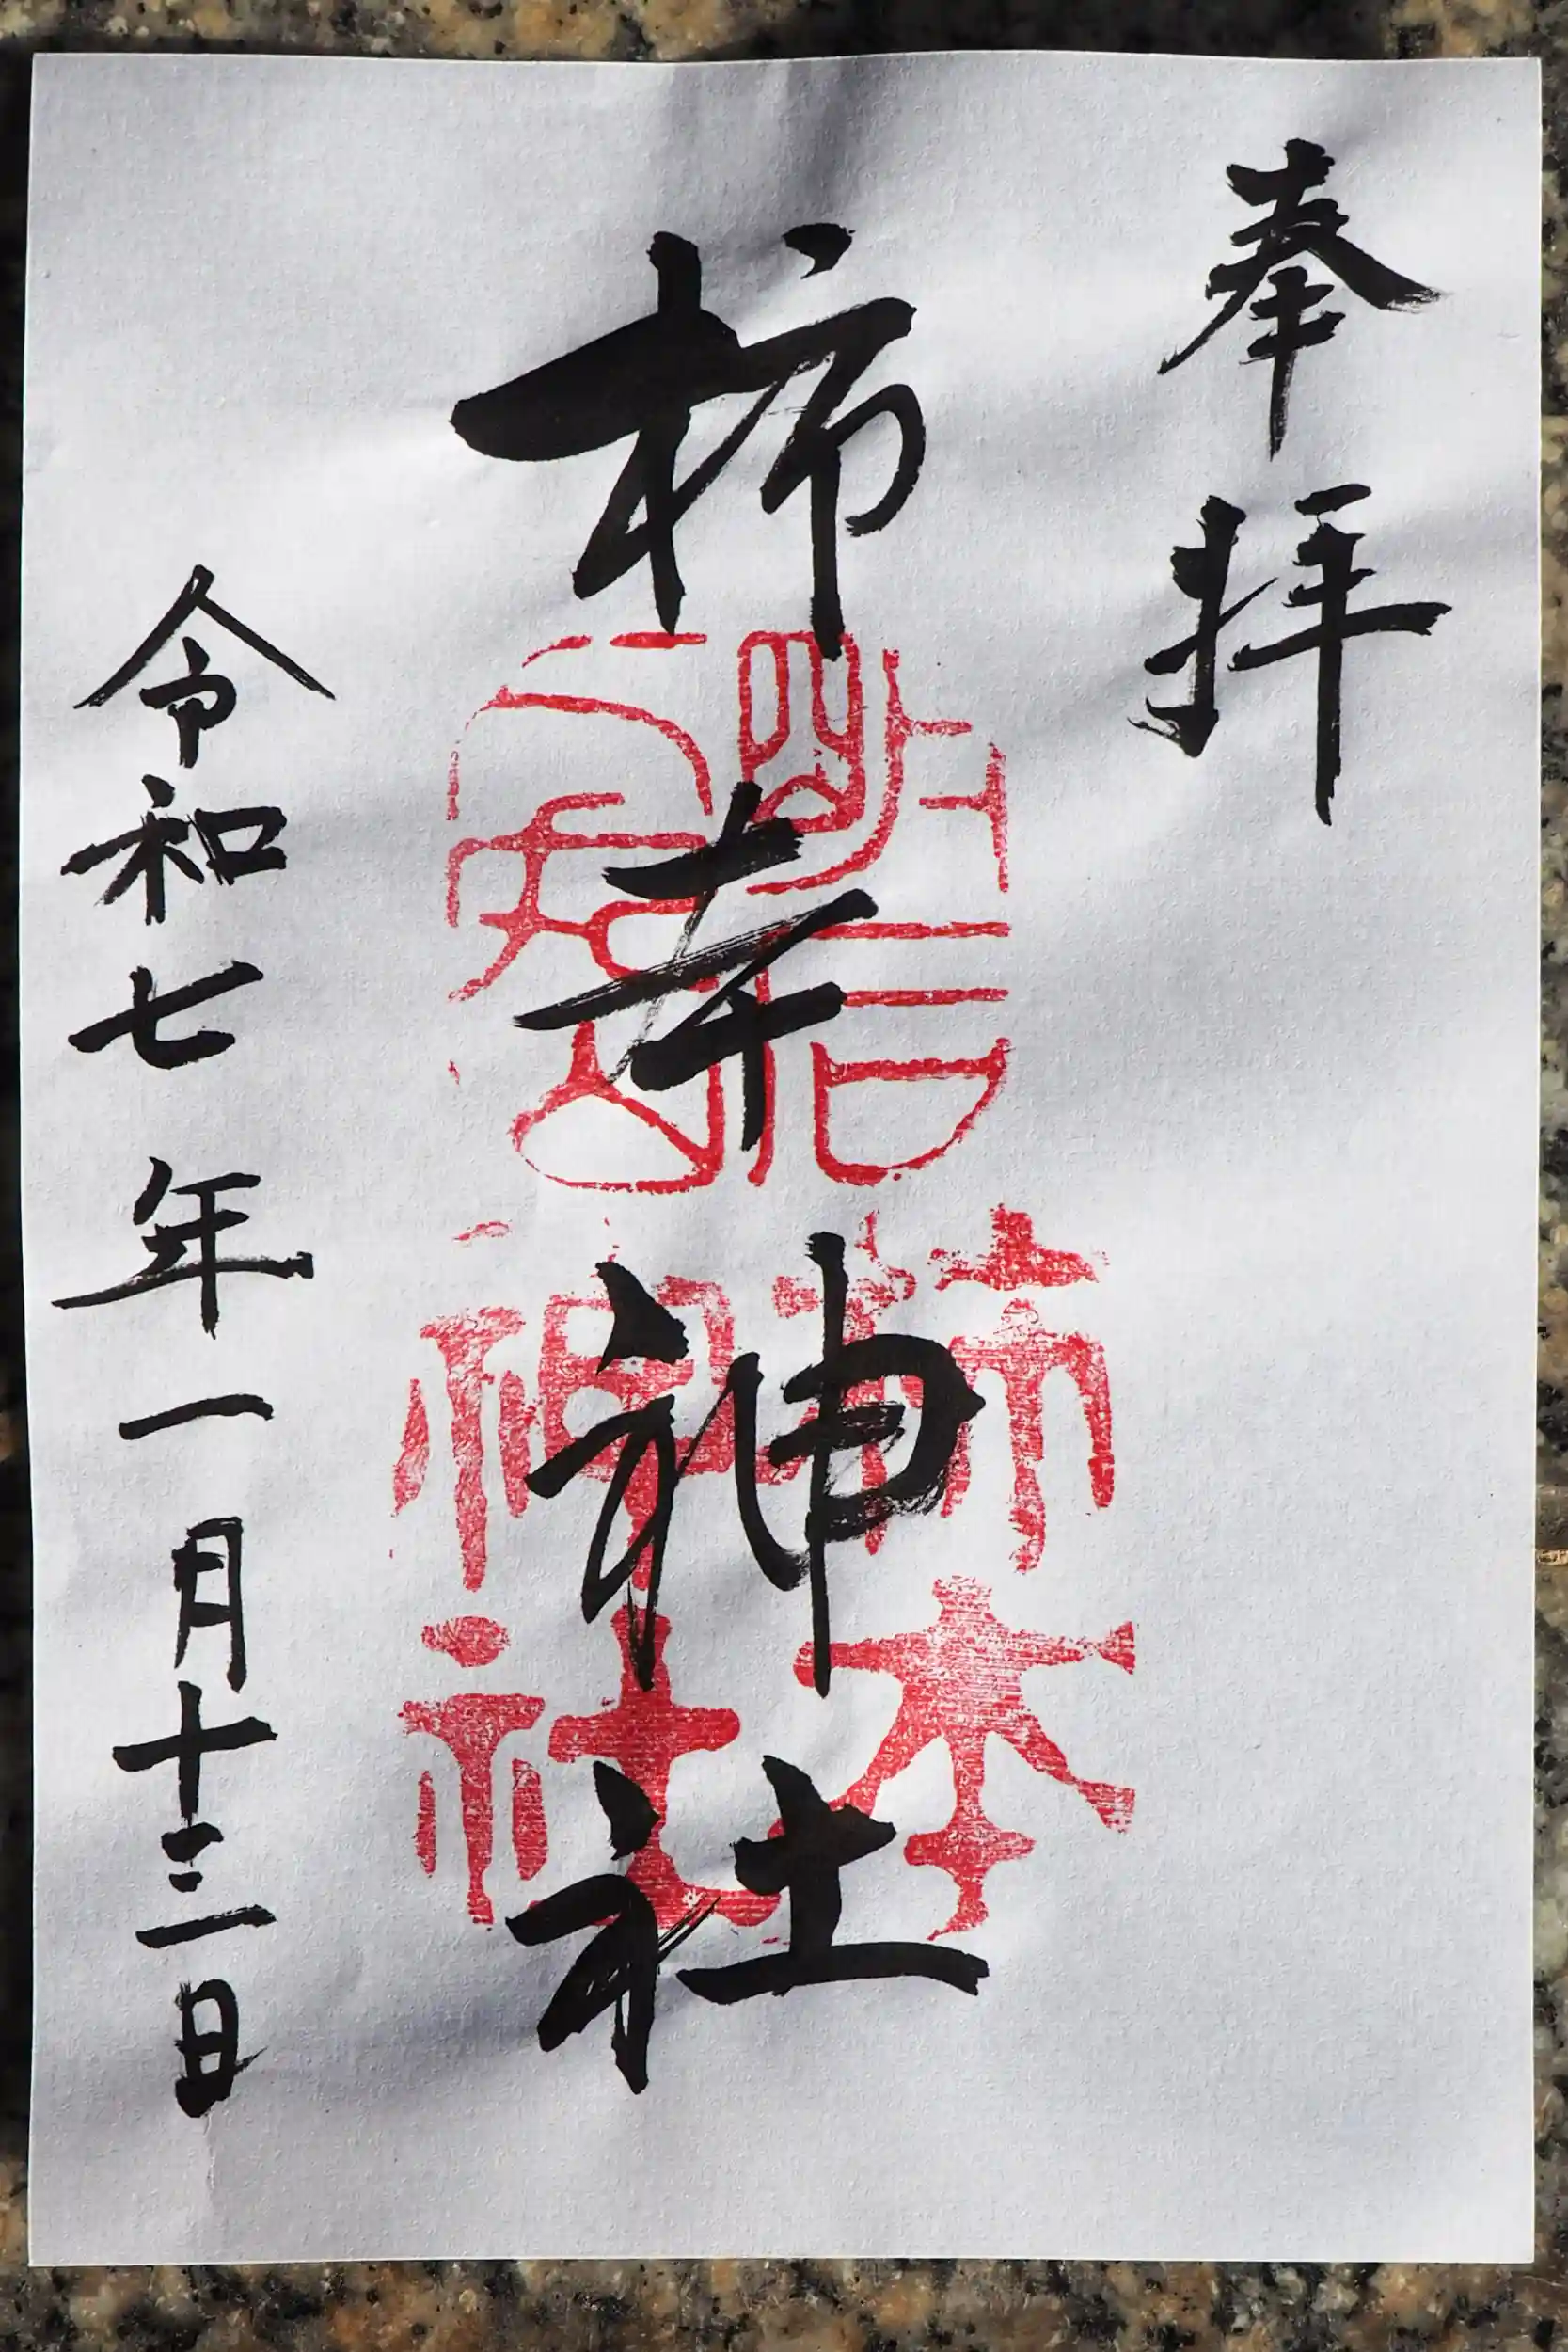 奉拝
柿本神社
柿本
神社
令和七年一月十三日